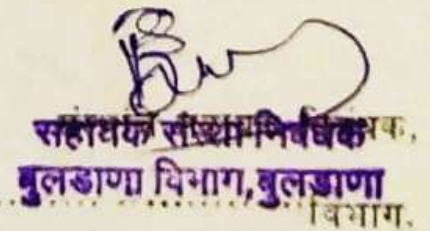 सहायक संस्था निबंधक
बुलडाणा विभाग, बुलडाणा
विभाग.